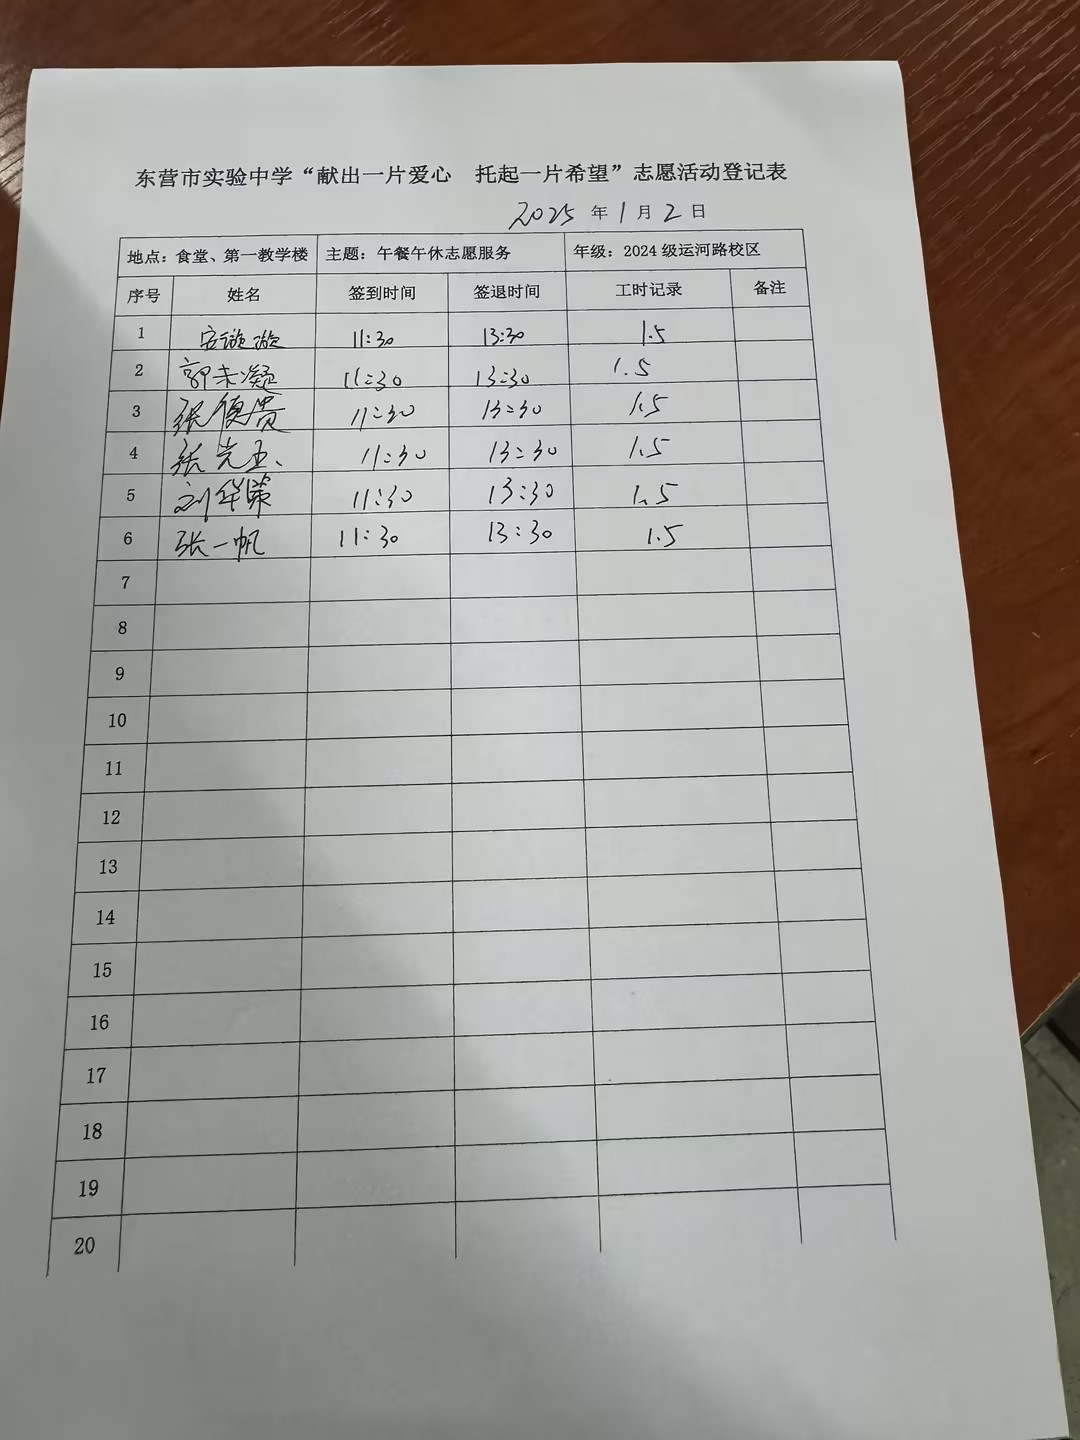 东营市实验中学“献出一片爱心 托起一片希望”志愿活动登记表
2025 年 1 月 2 日
地点：食堂、第一教学楼 主题：午餐午休志愿服务 年级：2024 级运河路校区
序号 姓名 签到时间 签退时间 工时记录 备注
1 11:30 13:30 1.5
2 郭未凝 11:30 13:30 1.5
3 张德贵 11:30 13:30 1.5
4 张 11:30 13:30 1.5
5 刘华策 11:30 13:30 1.5
6 张一帆 11:30 13:30 1.5
7
8
9
10
11
12
13
14
15
16
17
18
19
20